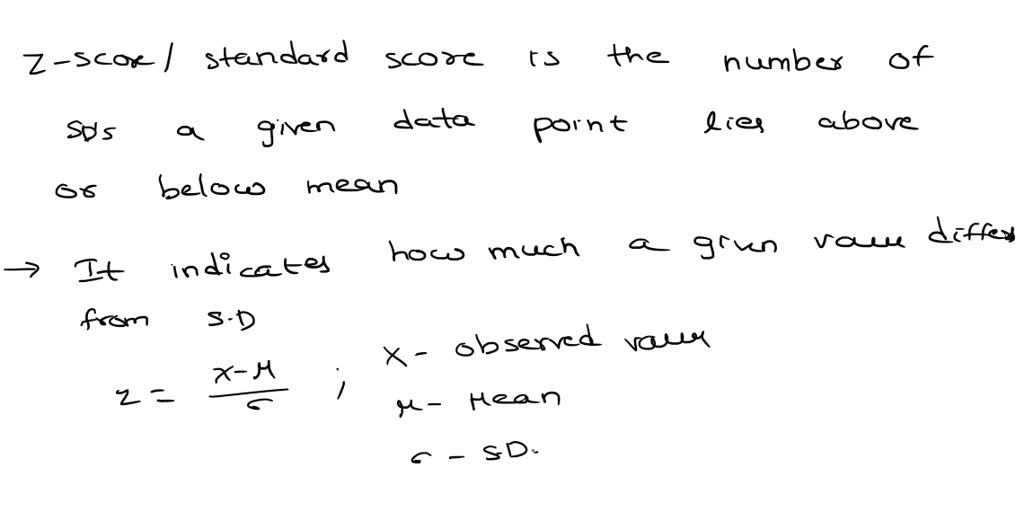 Z-score/ standard score is the number of
SD's a given data point lies above
or below mean
→ It indicates how much a given value differs
from S.D
z = (x-μ)/σ ; X - observed value
μ - Mean
σ - S.D.